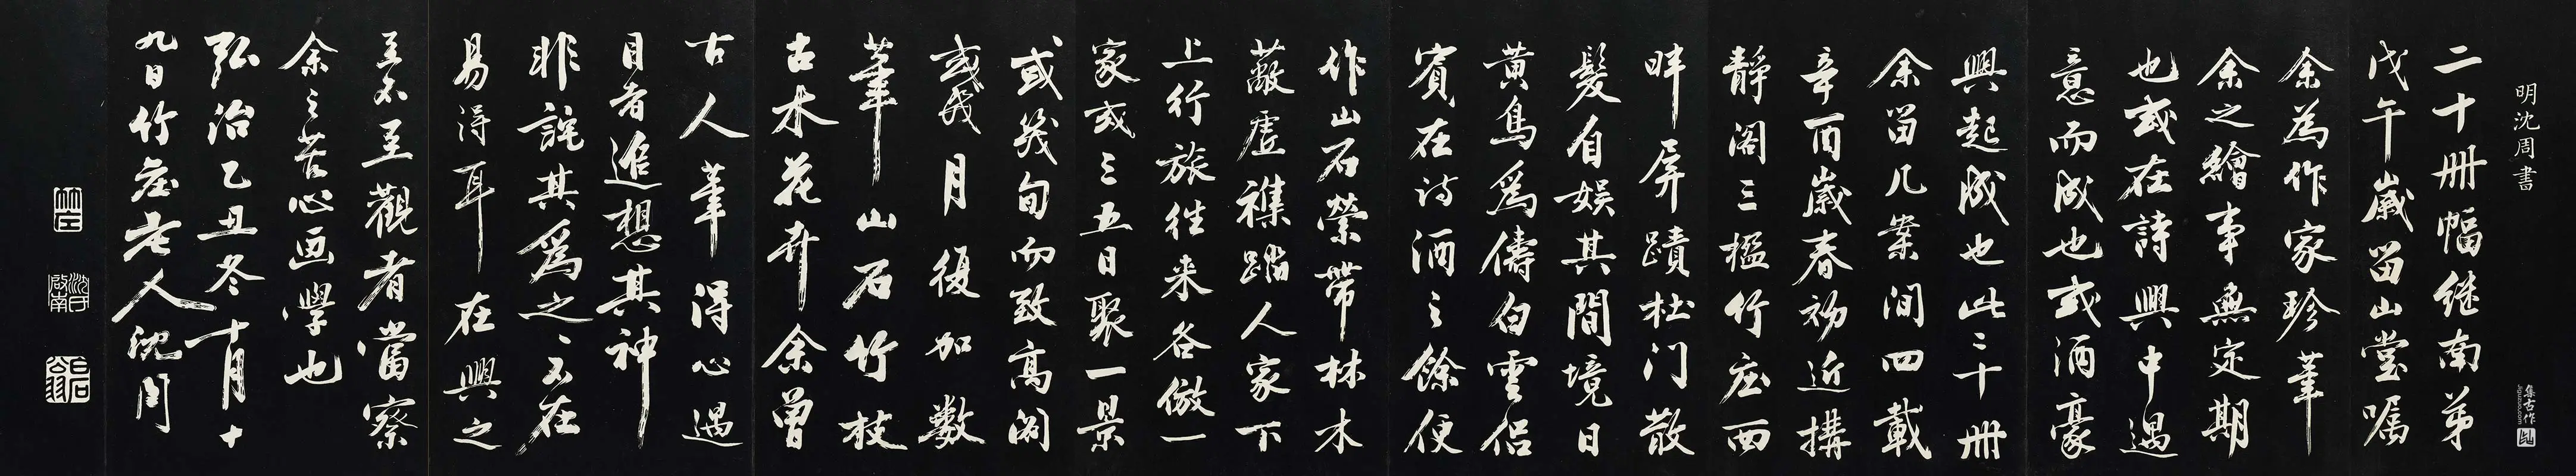 明沈周書
二十冊幅継南弟
戊午歲留山堂嘱
余為作家珍筆
余之繪事無定期
也或在詩興中遇
意而成也或酒豪
興起成也此二十冊
余留几案间四載
辛酉歲春初近搆
靜阁三楹竹庄西
畔屏蹟杜门散
髮自娛其間境日
黄鳥爲儔白雲侣
賓在诗酒之餘便
作山石縈带林木
蔽虚襍踏人家下
上行旅往来各倣一
家或三五日聚一景
或幾旬而致高阁
或幾月復加數
筆山石竹枝
古木花卉余曾
古人筆得心遇
目者追想其神
非詫其爲之之不在
易得耳在興之
至不至觀者當察
余之苦心画學也
弘治乙丑冬十月十
九日竹庄老人沈周
沈氏啟南
白石翁
集古作